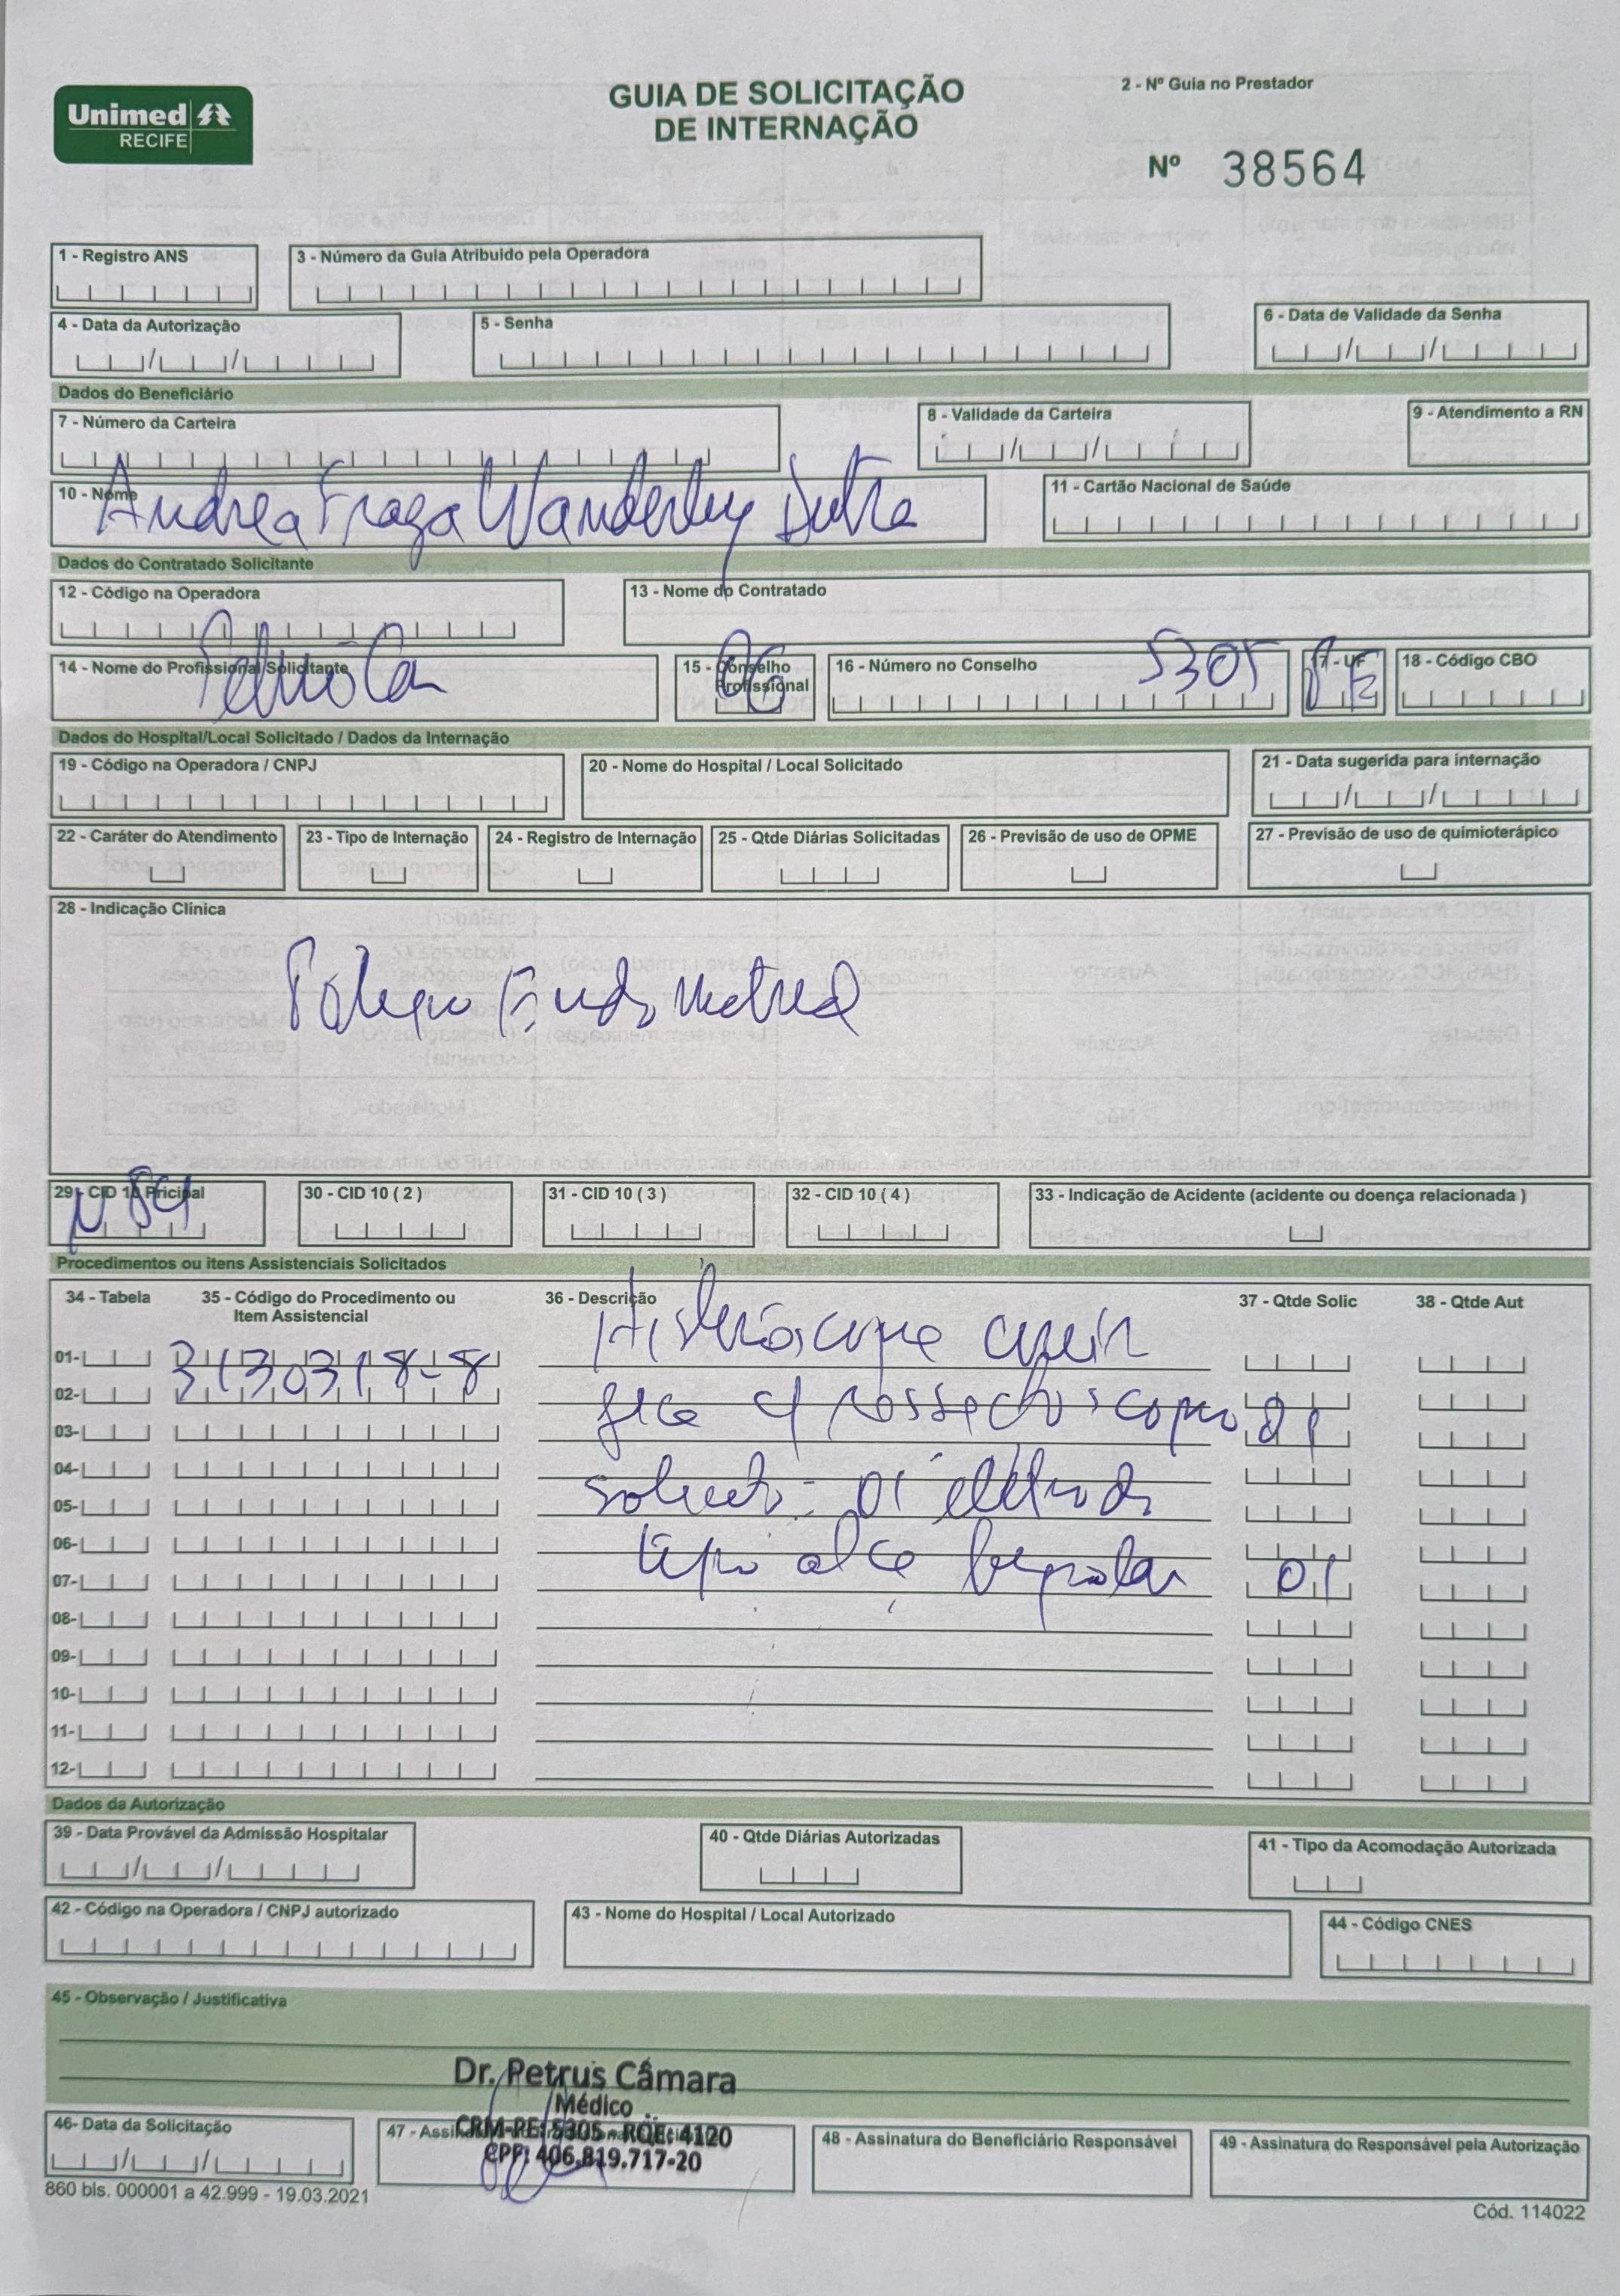 Unimed
RECIFE
GUIA DE SOLICITAÇÃO
DE INTERNAÇÃO
2 - Nº Guia no Prestador
Nº 38564
1 - Registro ANS
3 - Número da Guia Atribuido pela Operadora
4 - Data da Autorização
5 - Senha
6 - Data de Validade da Senha
Dados do Beneficiário
7 - Número da Carteira
8 - Validade da Carteira
9 - Atendimento a RN
10 - Nome
Andrea Fraga Wanderley Dutra
11 - Cartão Nacional de Saúde
Dados do Contratado Solicitante
12 - Código na Operadora
13 - Nome do Contratado
14 - Nome do Profissional Solicitante
15 - Conselho Profissional
06
16 - Número no Conselho
5305
17 - UF
PE
18 - Código CBO
Dados do Hospital/Local Solicitado / Dados da Internação
19 - Código na Operadora / CNPJ
20 - Nome do Hospital / Local Solicitado
21 - Data sugerida para internação
22 - Caráter do Atendimento
23 - Tipo de Internação
24 - Registro de Internação
25 - Qtde Diárias Solicitadas
26 - Previsão de uso de OPME
27 - Previsão de uso de quimioterápico
28 - Indicação Clínica
Pólipo Endometrial
29 - CID 10 Pricipal
N84
30 - CID 10 ( 2 )
31 - CID 10 ( 3 )
32 - CID 10 ( 4 )
33 - Indicação de Acidente (acidente ou doença relacionada )
Procedimentos ou itens Assistenciais Solicitados
34 - Tabela
35 - Código do Procedimento ou Item Assistencial
36 - Descrição
37 - Qtde Solic
38 - Qtde Aut
01- 3130318-8 Histeroscopia cirúr
02- gica c/ ressectoscopio 01
03-
04- solicito: 01 eletrodo
05-
06- tipo alça bipolar 01
07-
08-
09-
10-
11-
12-
Dados da Autorização
39 - Data Provável da Admissão Hospitalar
40 - Qtde Diárias Autorizadas
41 - Tipo da Acomodação Autorizada
42 - Código na Operadora / CNPJ autorizado
43 - Nome do Hospital / Local Autorizado
44 - Código CNES
45 - Observação / Justificativa
Dr. Petrus Câmara
Médico
CRM-PE: 5305 - RQE: 4120
CPF: 406.819.717-20
46- Data da Solicitação
47 - Assi
48 - Assinatura do Beneficiário Responsável
49 - Assinatura do Responsável pela Autorização
860 bls. 000001 a 42.999 - 19.03.2021
Cód. 114022